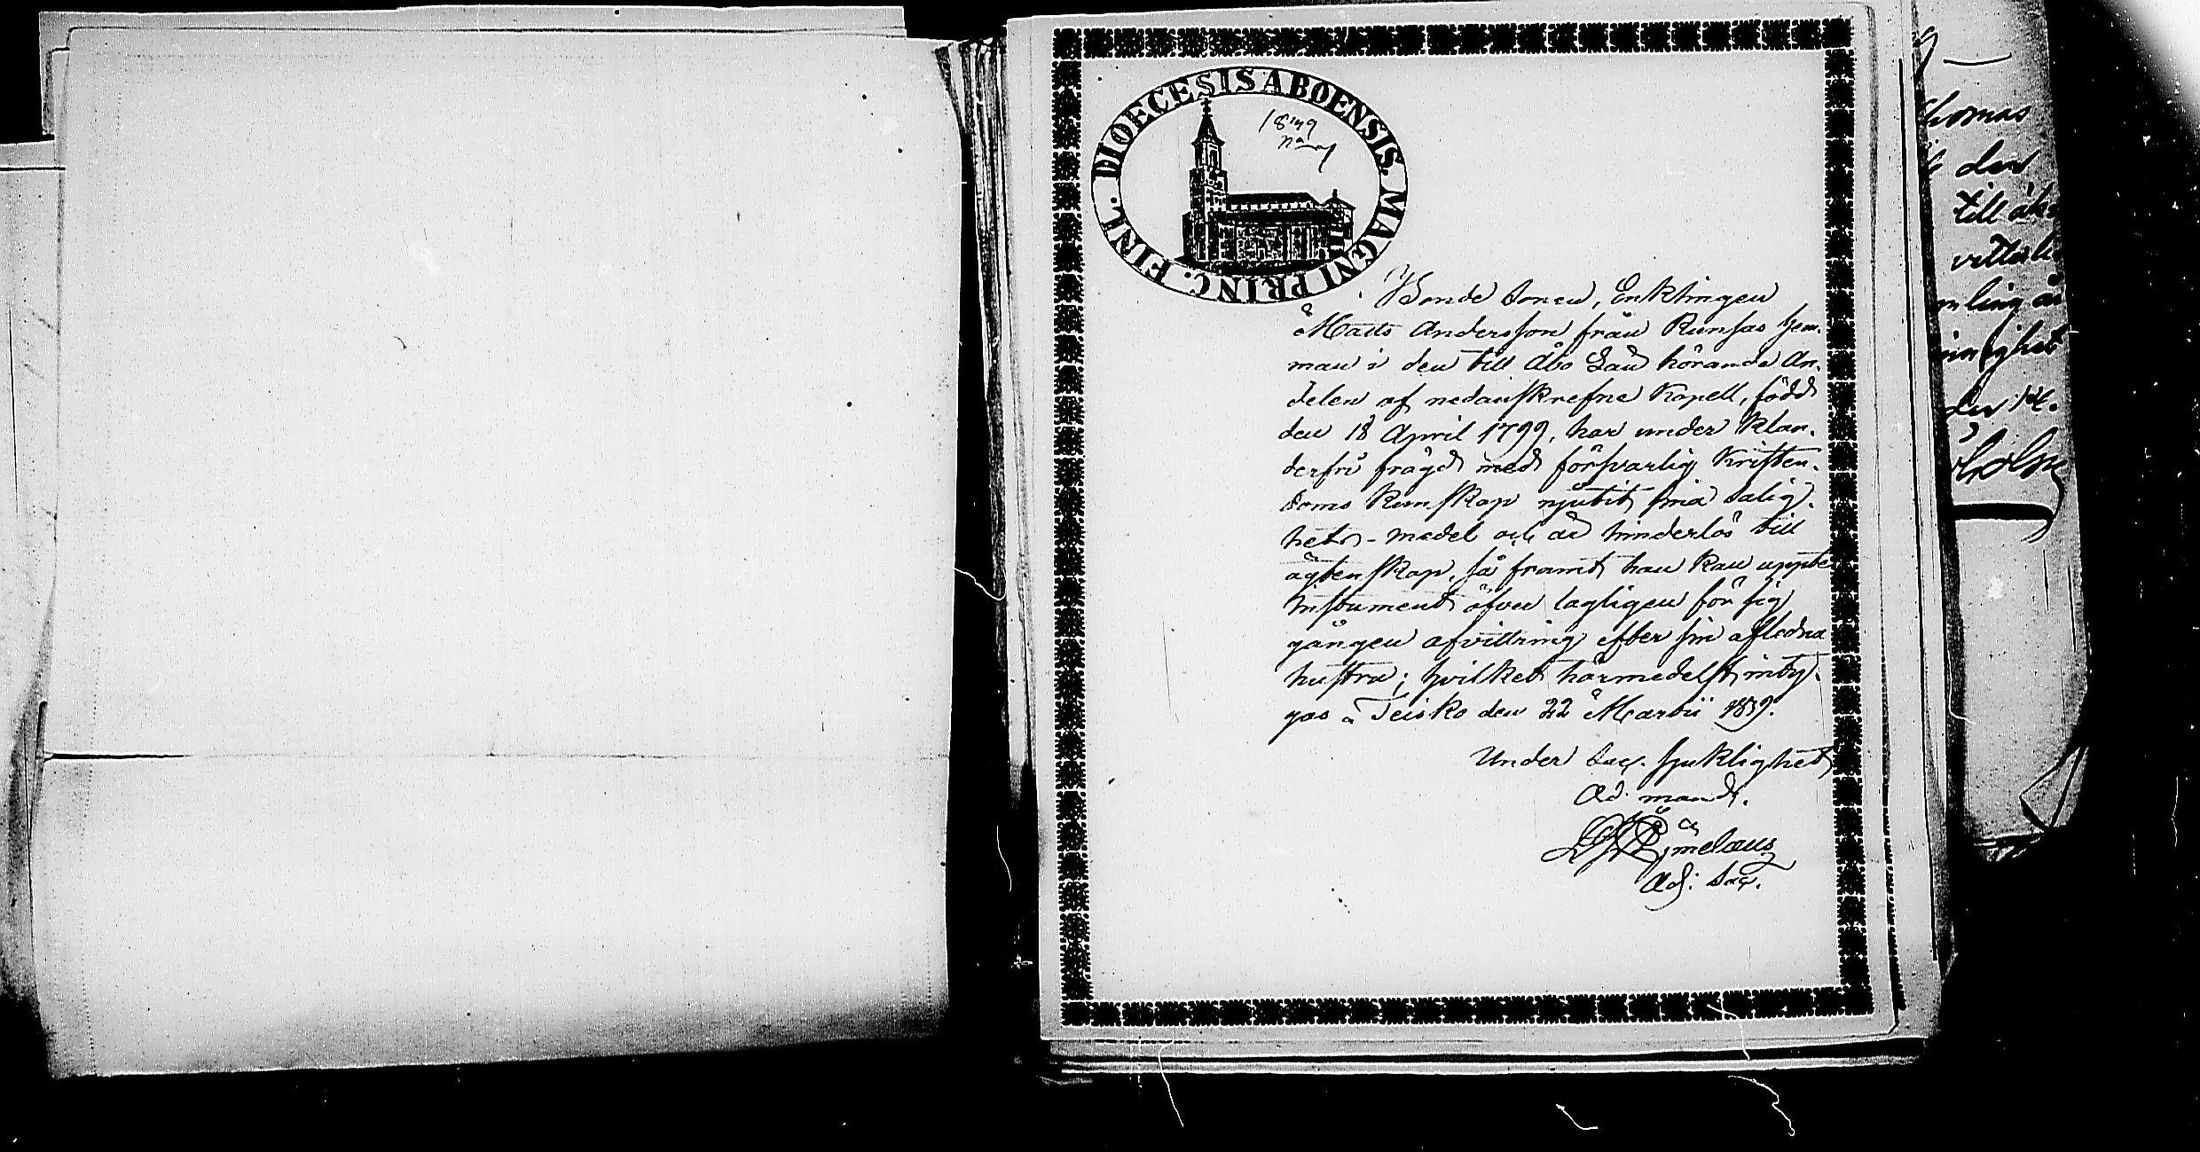 DIOECESIS ABOENSIS. MAGNI PRINC. FINL.
1839
Bonde Sonen, Enklingen
Matts Andersson från Runsas hem-
man i den till Åbo Län hörande An-
delen af nedanskrefne Kapell, född
den 18 April 1799, har under klan-
derfri frägd med försvarlig Kristen-
doms Kunskap njutit sina salig-
hets-medel och är hinderlös till
ägtenskap, så framt han kan uppte
Instrument öfver lagligen för sig
gången afvittring efter sin aflidna
hustru; hvilket härmedelst inty-
gas. Teisko den 22 Martii 1839.
Under Sac. sjuklighet
Ad mand.
Adj. Sac.
homas
den
till
den 14.